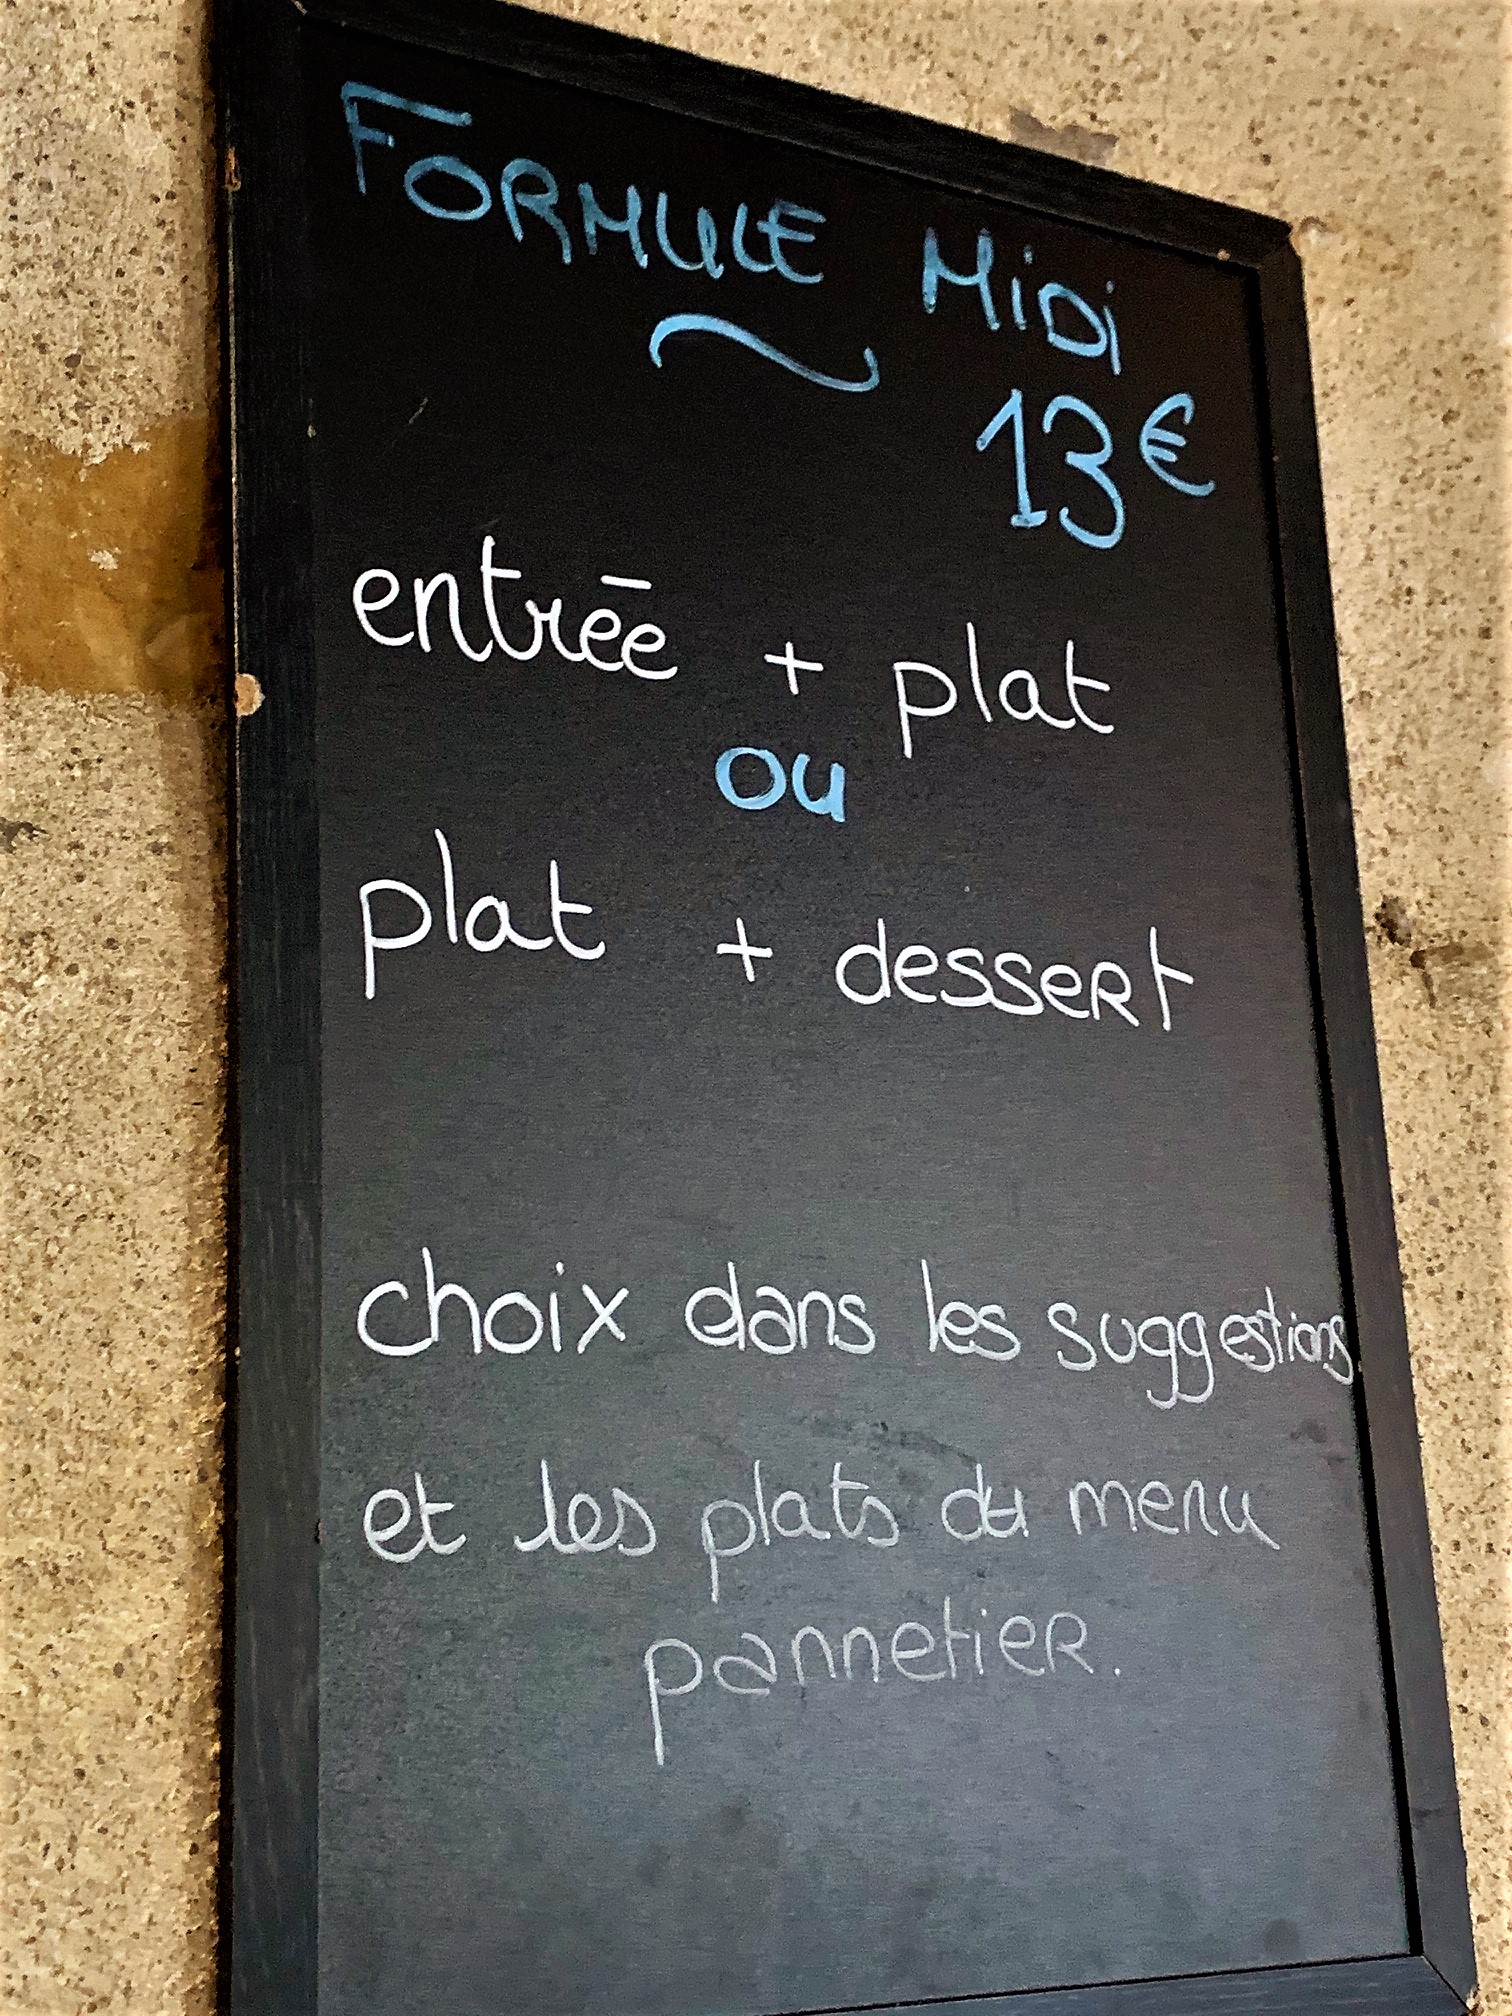 FORMULE MiDi
13€
entrée + plat
ou
plat + dessert
choix dans les suggestions
et les plats du menu
pannetier.